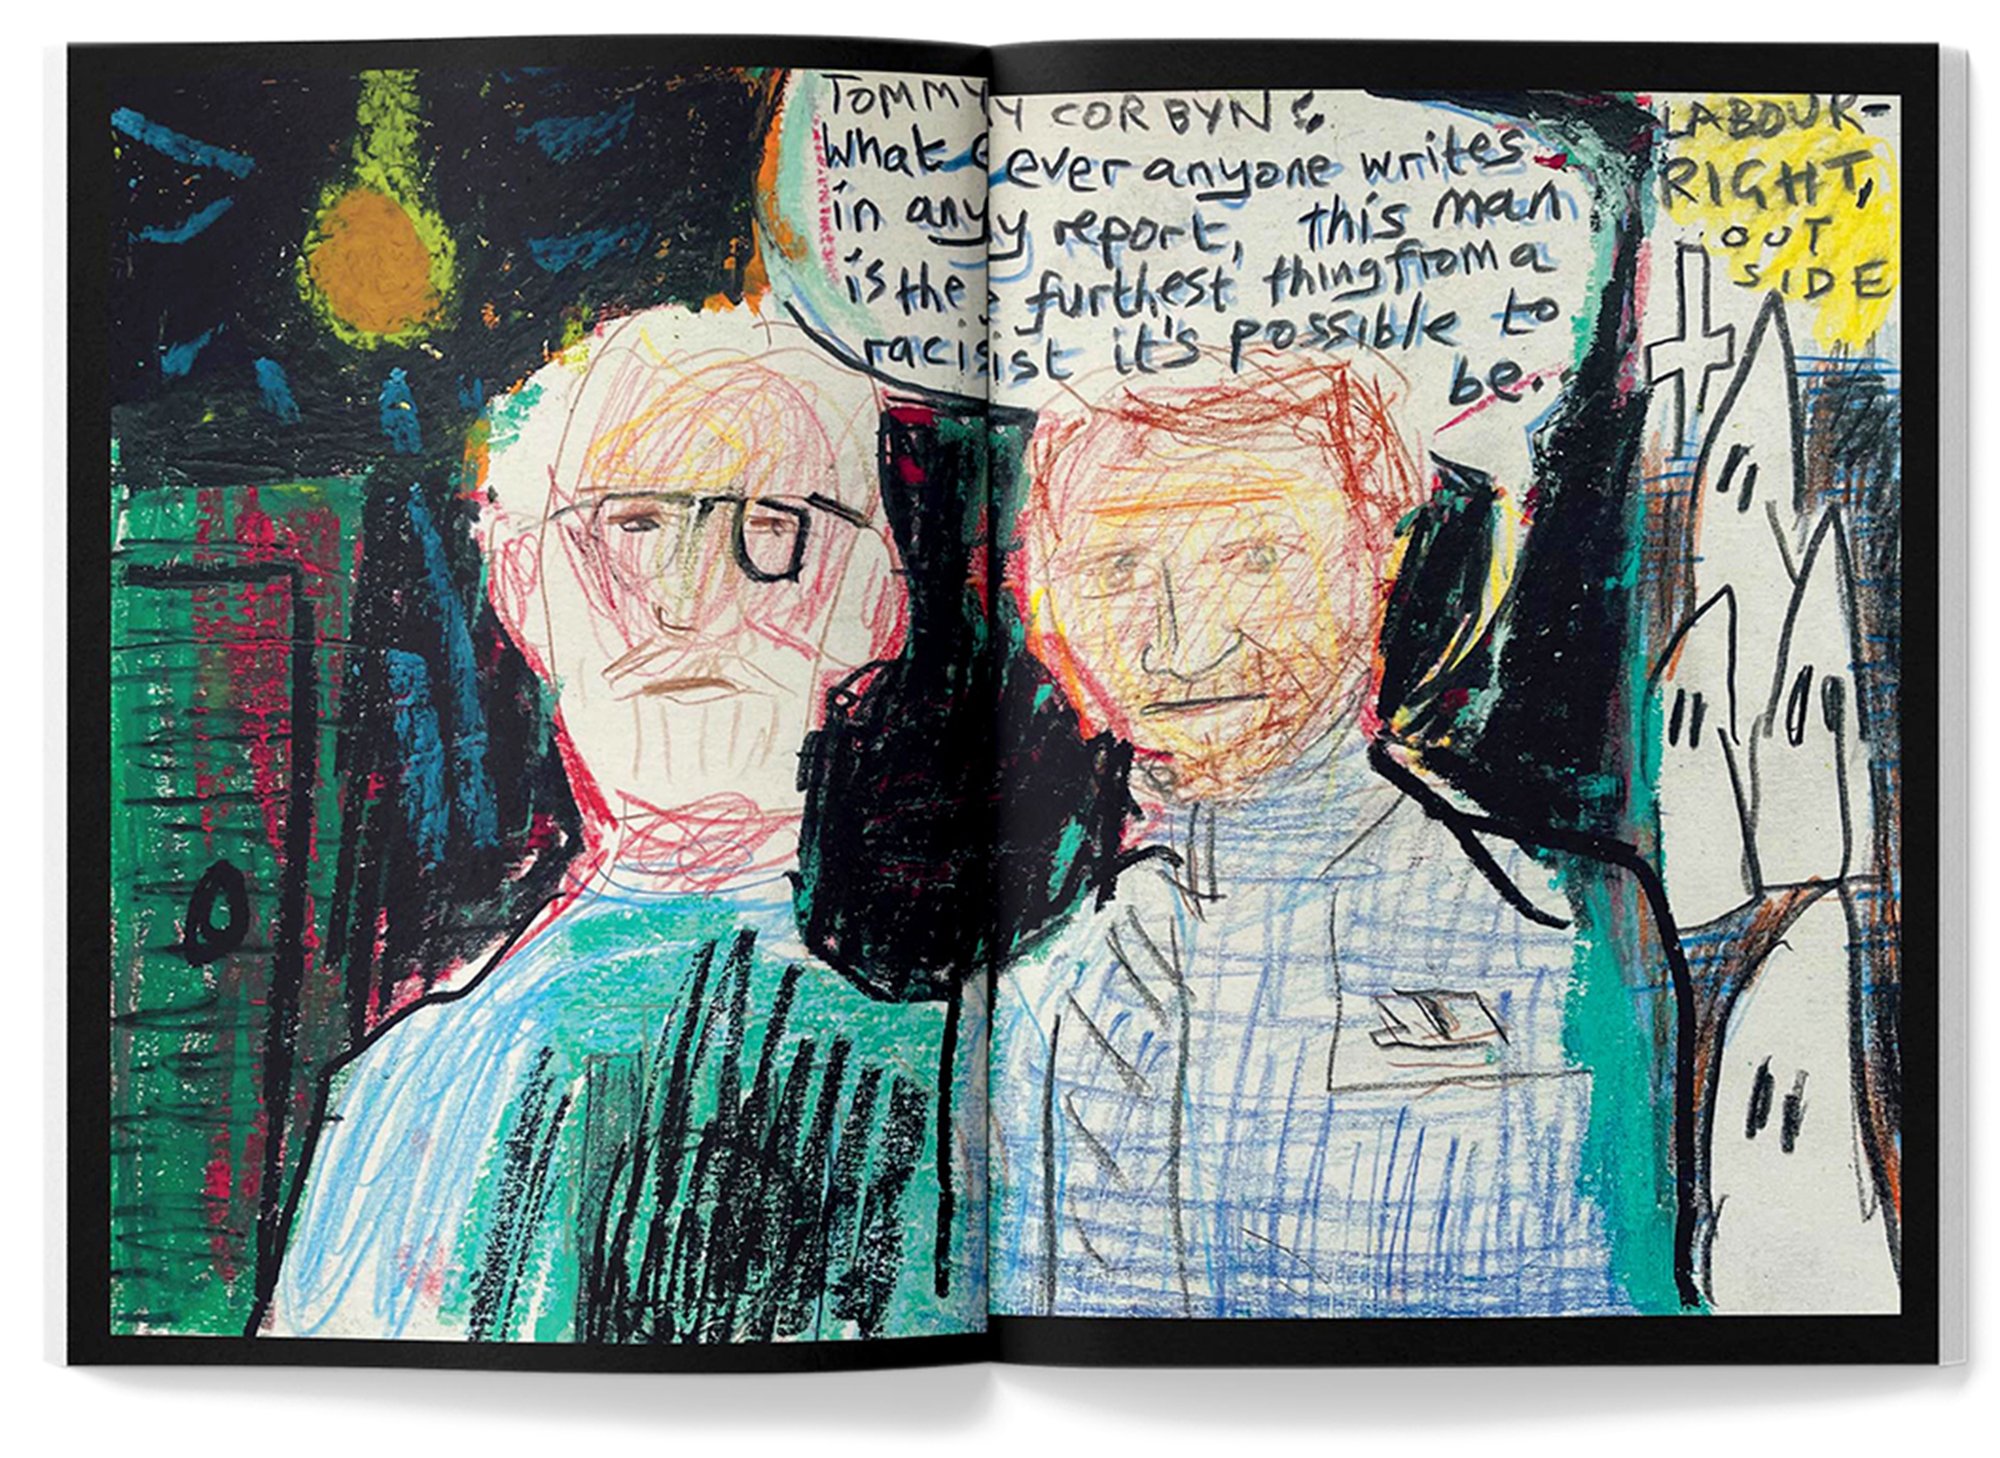 TOMMY CORBYN:
What ever anyone writes
in any report, this man
is the furthest thing from a
racist it's possible to
be..
LABOUR-
RIGHT,
OUT
SIDE